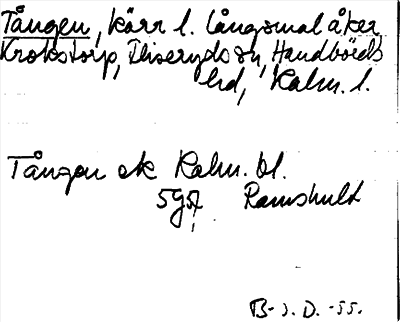 Tången, kärr l. långsmal åker
Krokstorp, Fliseryds sn, Handbörds
hd, Kalm. l.
Tången ek Kalm. bl.
5g5f Ramshult
B-s. D. -55.